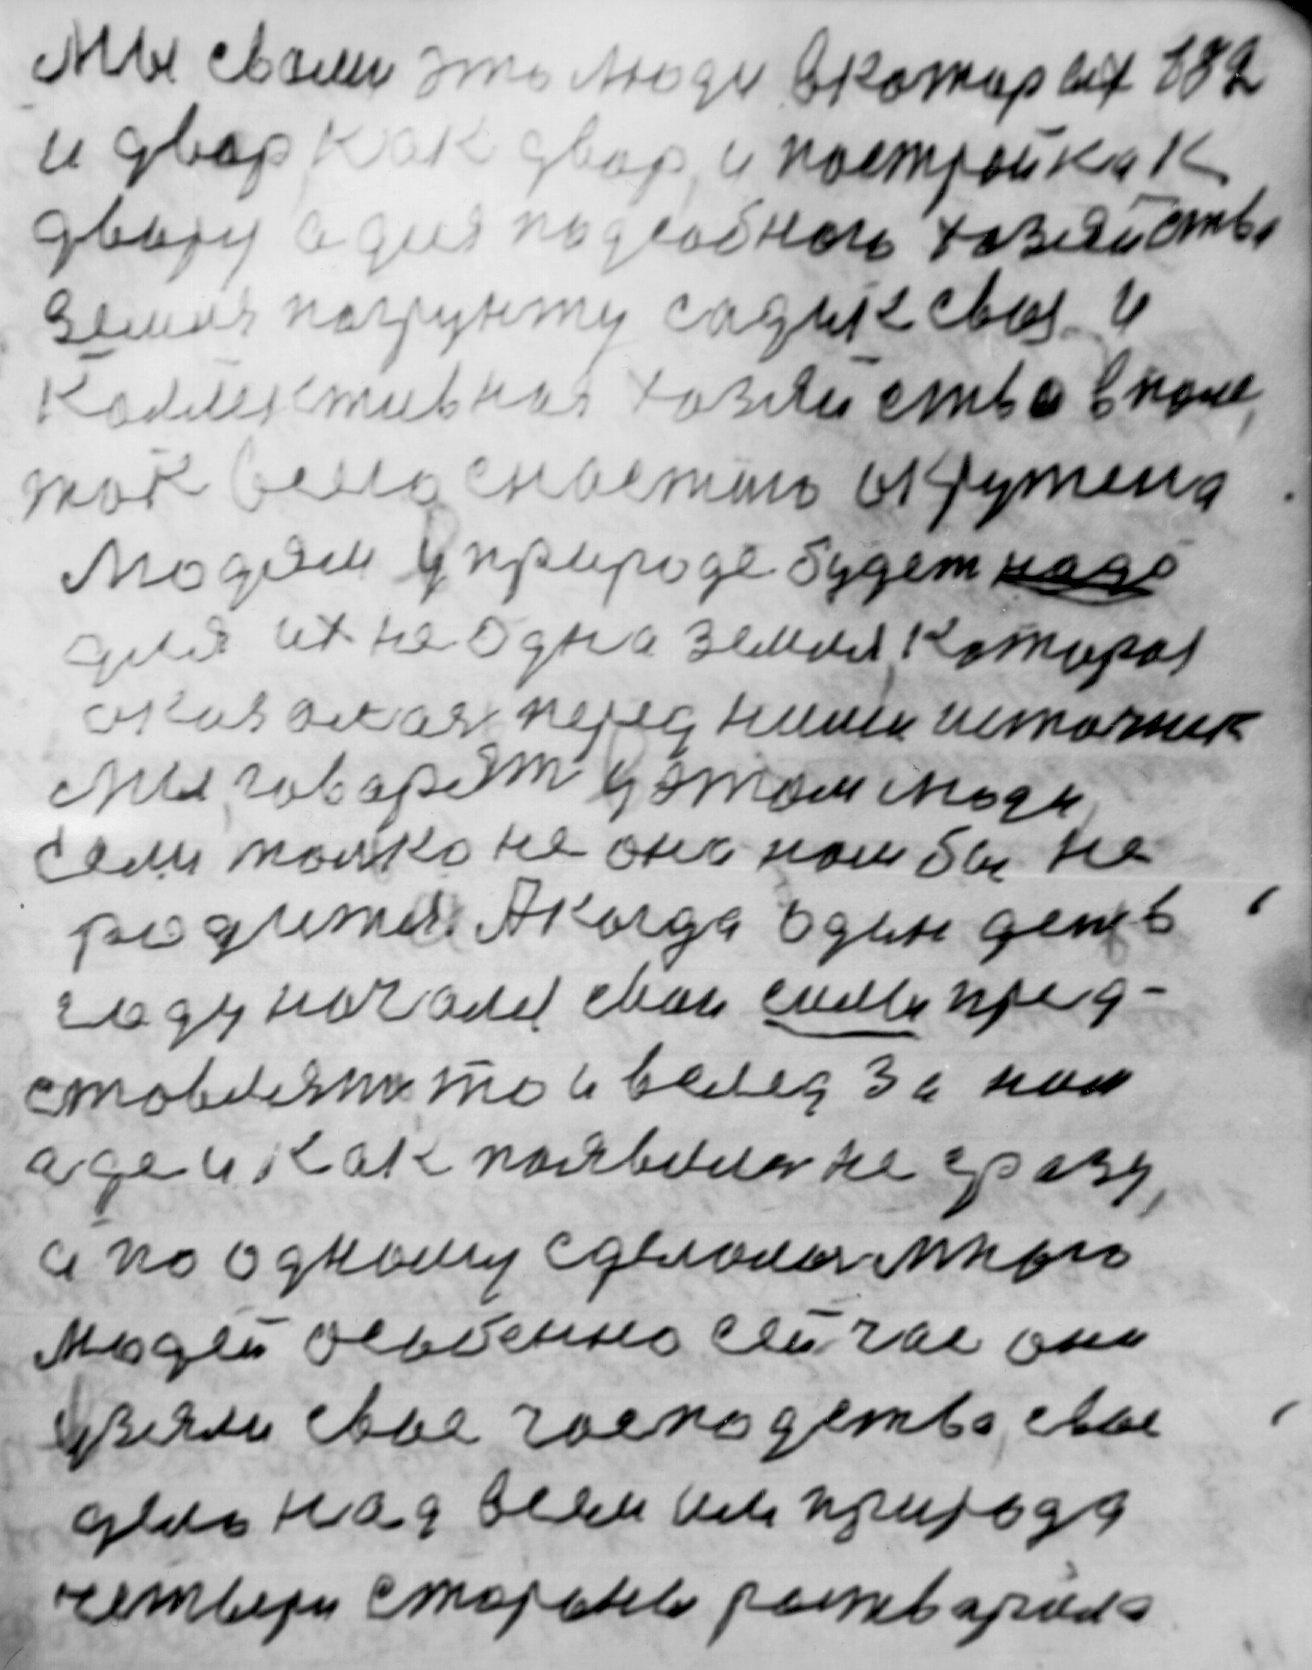 Мы свами это люди вкотарых 182
и двар как двар, и пастройка к
двару а для падсобного хазяйства
земля пагрунту садик своя и
Коллективная хазяйства вполе,
так всего снастиго окружена
Людям у природе будет надо
для их не одна земля, катарая
оказалая перед ними источник
Мы, говарят у этом люди,
если только не она нам бы не
родится. А когда один день в
году начали свои силы пред-
ставлять то и вслед за ним
где и как появился не сразу,
и по одному сделался много
людей особенно сейчас они
узяли свое господства, свое
дело над всем им природа
четыри стороны растварила